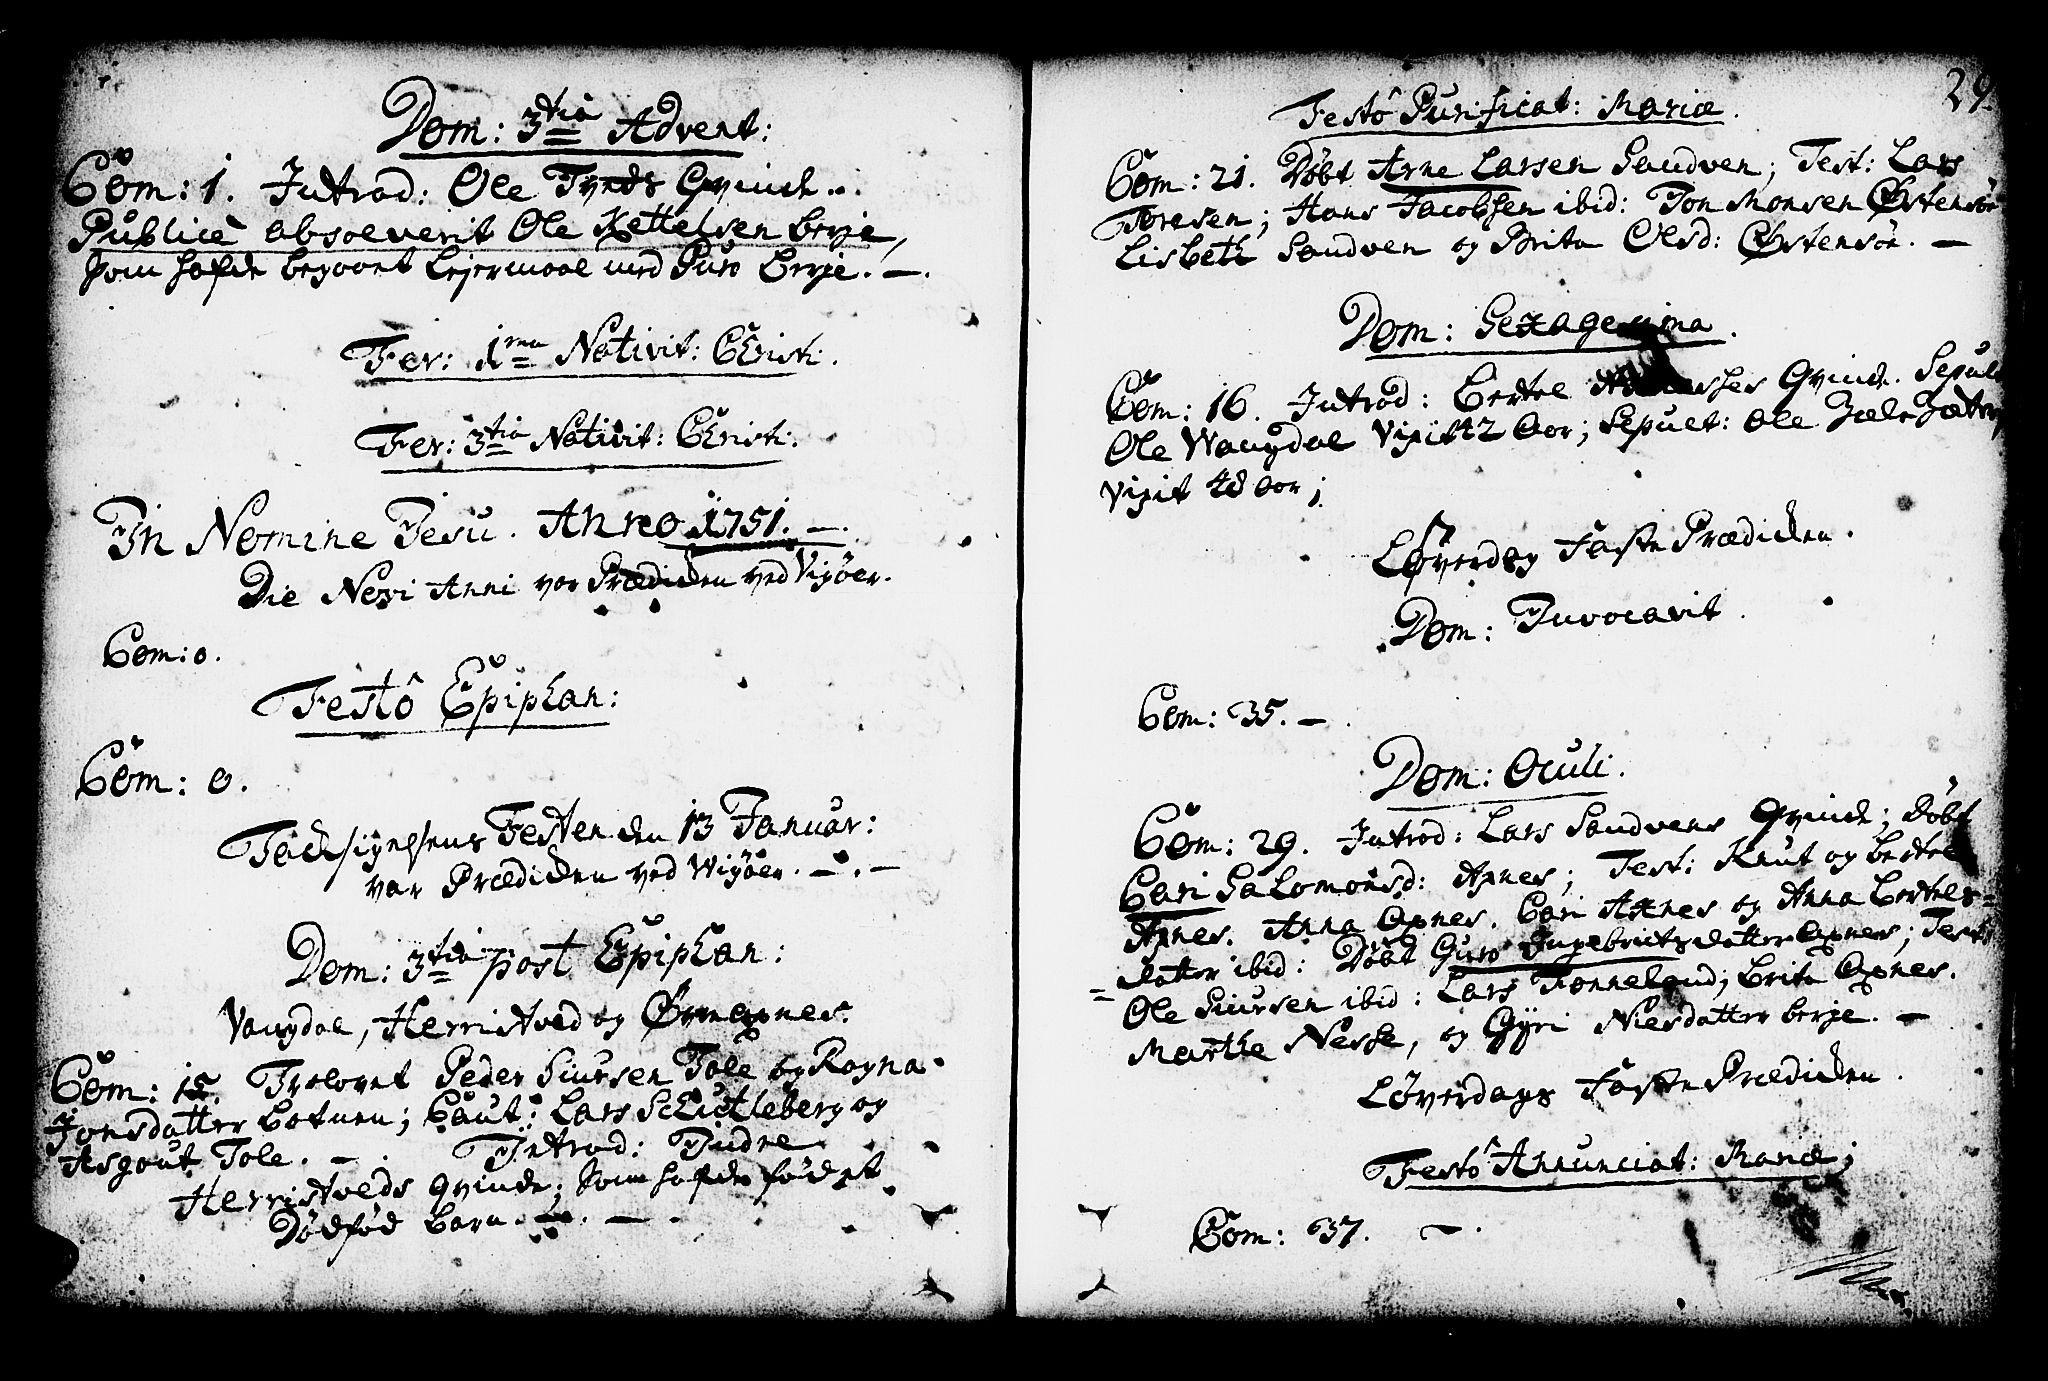 Dom: 3tia Advent:
Com: 1. Introd: Ole Tveds Qvinde.
Publicè absolverit Ole Kettelsen Berje,
som hafde begaaet Lejermaal med Guro Berje. —.
Fer: 1ma Nativit: Christi.
Fer: 3tia Nativit: Christi.
In Nomine Jesu. Anno 1751. —.
Die Novi Anni var Prædiken ved Vigøer.
Com: 0.
Festô Epiphan:
Com: 0.
Tacksigelsens Festen den 13 Januar:
var Prædiken ved Wigøer. —. —
Dom: 3tia post Epiphan:
Vangdal, Herristved og Axnes.
Com: 15. Trolovet Peder Siursen Tole og Ragna
Jonsdatter Botnen; Caut: Lars Schutleberg og
Asgout Tole. —. Introd:
Herristveds Qvinde; som hafde fødet
Dødfød Barn. —. —.
29.
Festô Purificat: Mariæ.
Com: 21. Døbt Arne Larsen Sandven; Test: Lars
Toresen; Hans Jacobsen ibid: Jon Monsen Østensøe
Lisbeth Sandven og Brita Olsd: Østensøe. —
Dom: Sexagesima.
Com: 16. Introd: Bertel Qvinde. Sepult
Ole Wangdal Vixit 42 Aar; Sepult: Ole
Vixit 48 Aar;
Løverdag Faste Prædiken.
Dom: Invocavit.
Com: 35. —.
Dom: Oculi.
Com: 29. Introd: Lars Sandvens Qvinde; Døbt
Cari Salomonsd: Axnes; Test: Knut og Bertel
Axnes. Anna Axnes. Cari Axnes og Anna Bertels=
=datter ibid: Døbt Guro Ingebrictsdatter Axnes; Test:
Ole Siursen ibid: Lars Tonneland; Brita Axnes.
Marthe Nesse, og Gyri Nielsdatter Berje. —
Løverdags Faste Prædiken.
Festô Annunciat: Mariæ;
Com: 37. —.